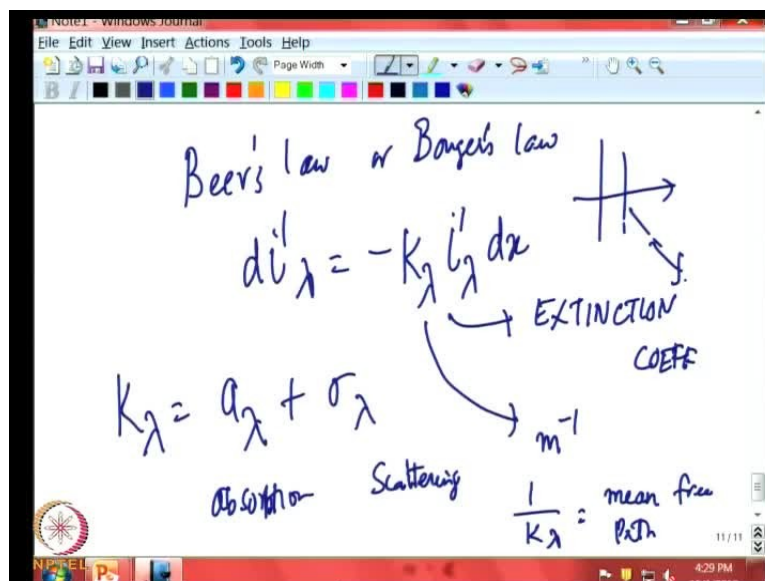 Note1 - Windows Journal
File Edit View Insert Actions Tools Help
Page Width
B I
Beer's law or Bouger's law
di'λ = -Kλ i'λ dx
EXTINCTION
COEFF
Kλ = aλ + σλ
m⁻¹
absorption Scattering
1/Kλ = mean free
Path
11/11
NPTEL
4:29 PM